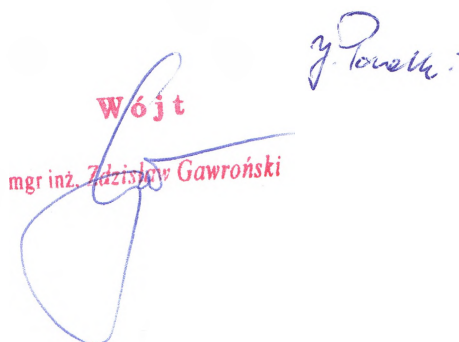 Wójt
mgr inż. Zdzisław Gawroński